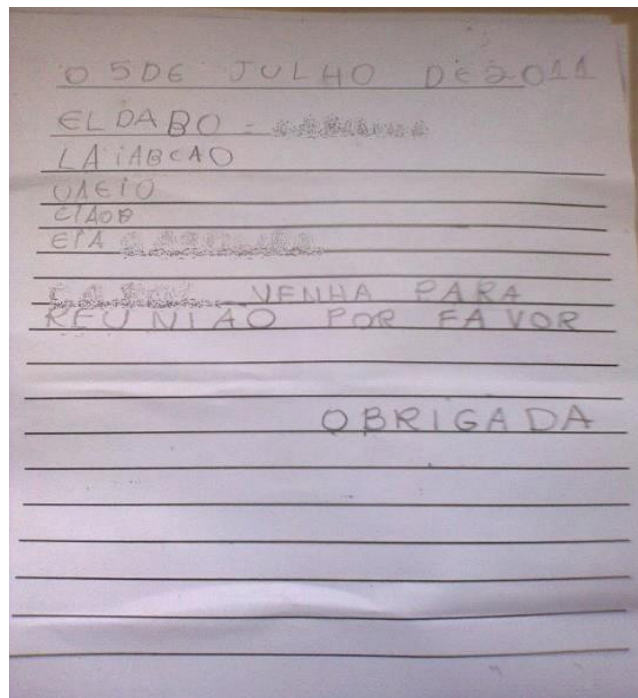 05 DE JULHO DE 2011
ELDABO -
LAiABCAO
UAEiO
CIAOB
EIA
VENHA PARA
REUNIÃO POR FAVOR
OBRIGADA